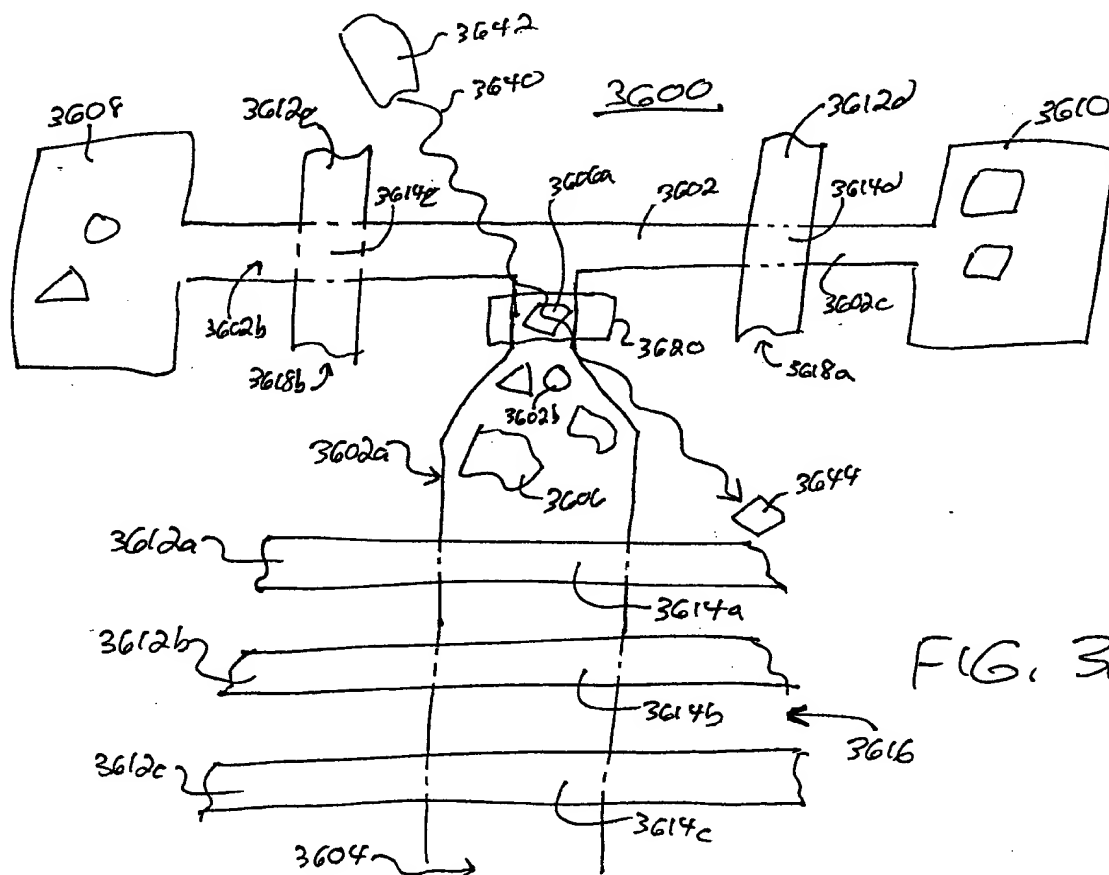 3642
3640
3600
3608
3612e
3612d
3610
3606a
3602
3614e
3614d
3602b
3602c
3620
3618b
3618a
3602b
3602a
3606
3644
3612a
3614a
3612b
3614b
FIG. 3
3616
3612c
3614c
3604